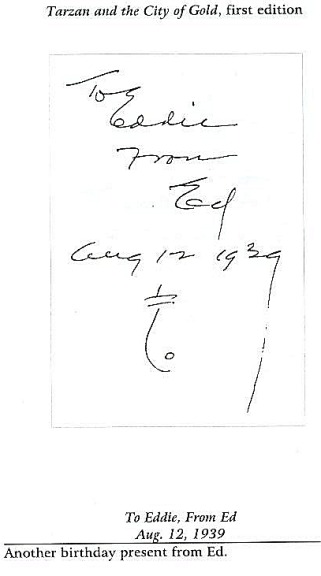 Tarzan and the City of Gold, first edition
To
Eddie
From
Ed
Aug 12 1939
To Eddie, From Ed
Aug. 12, 1939
Another birthday present from Ed.